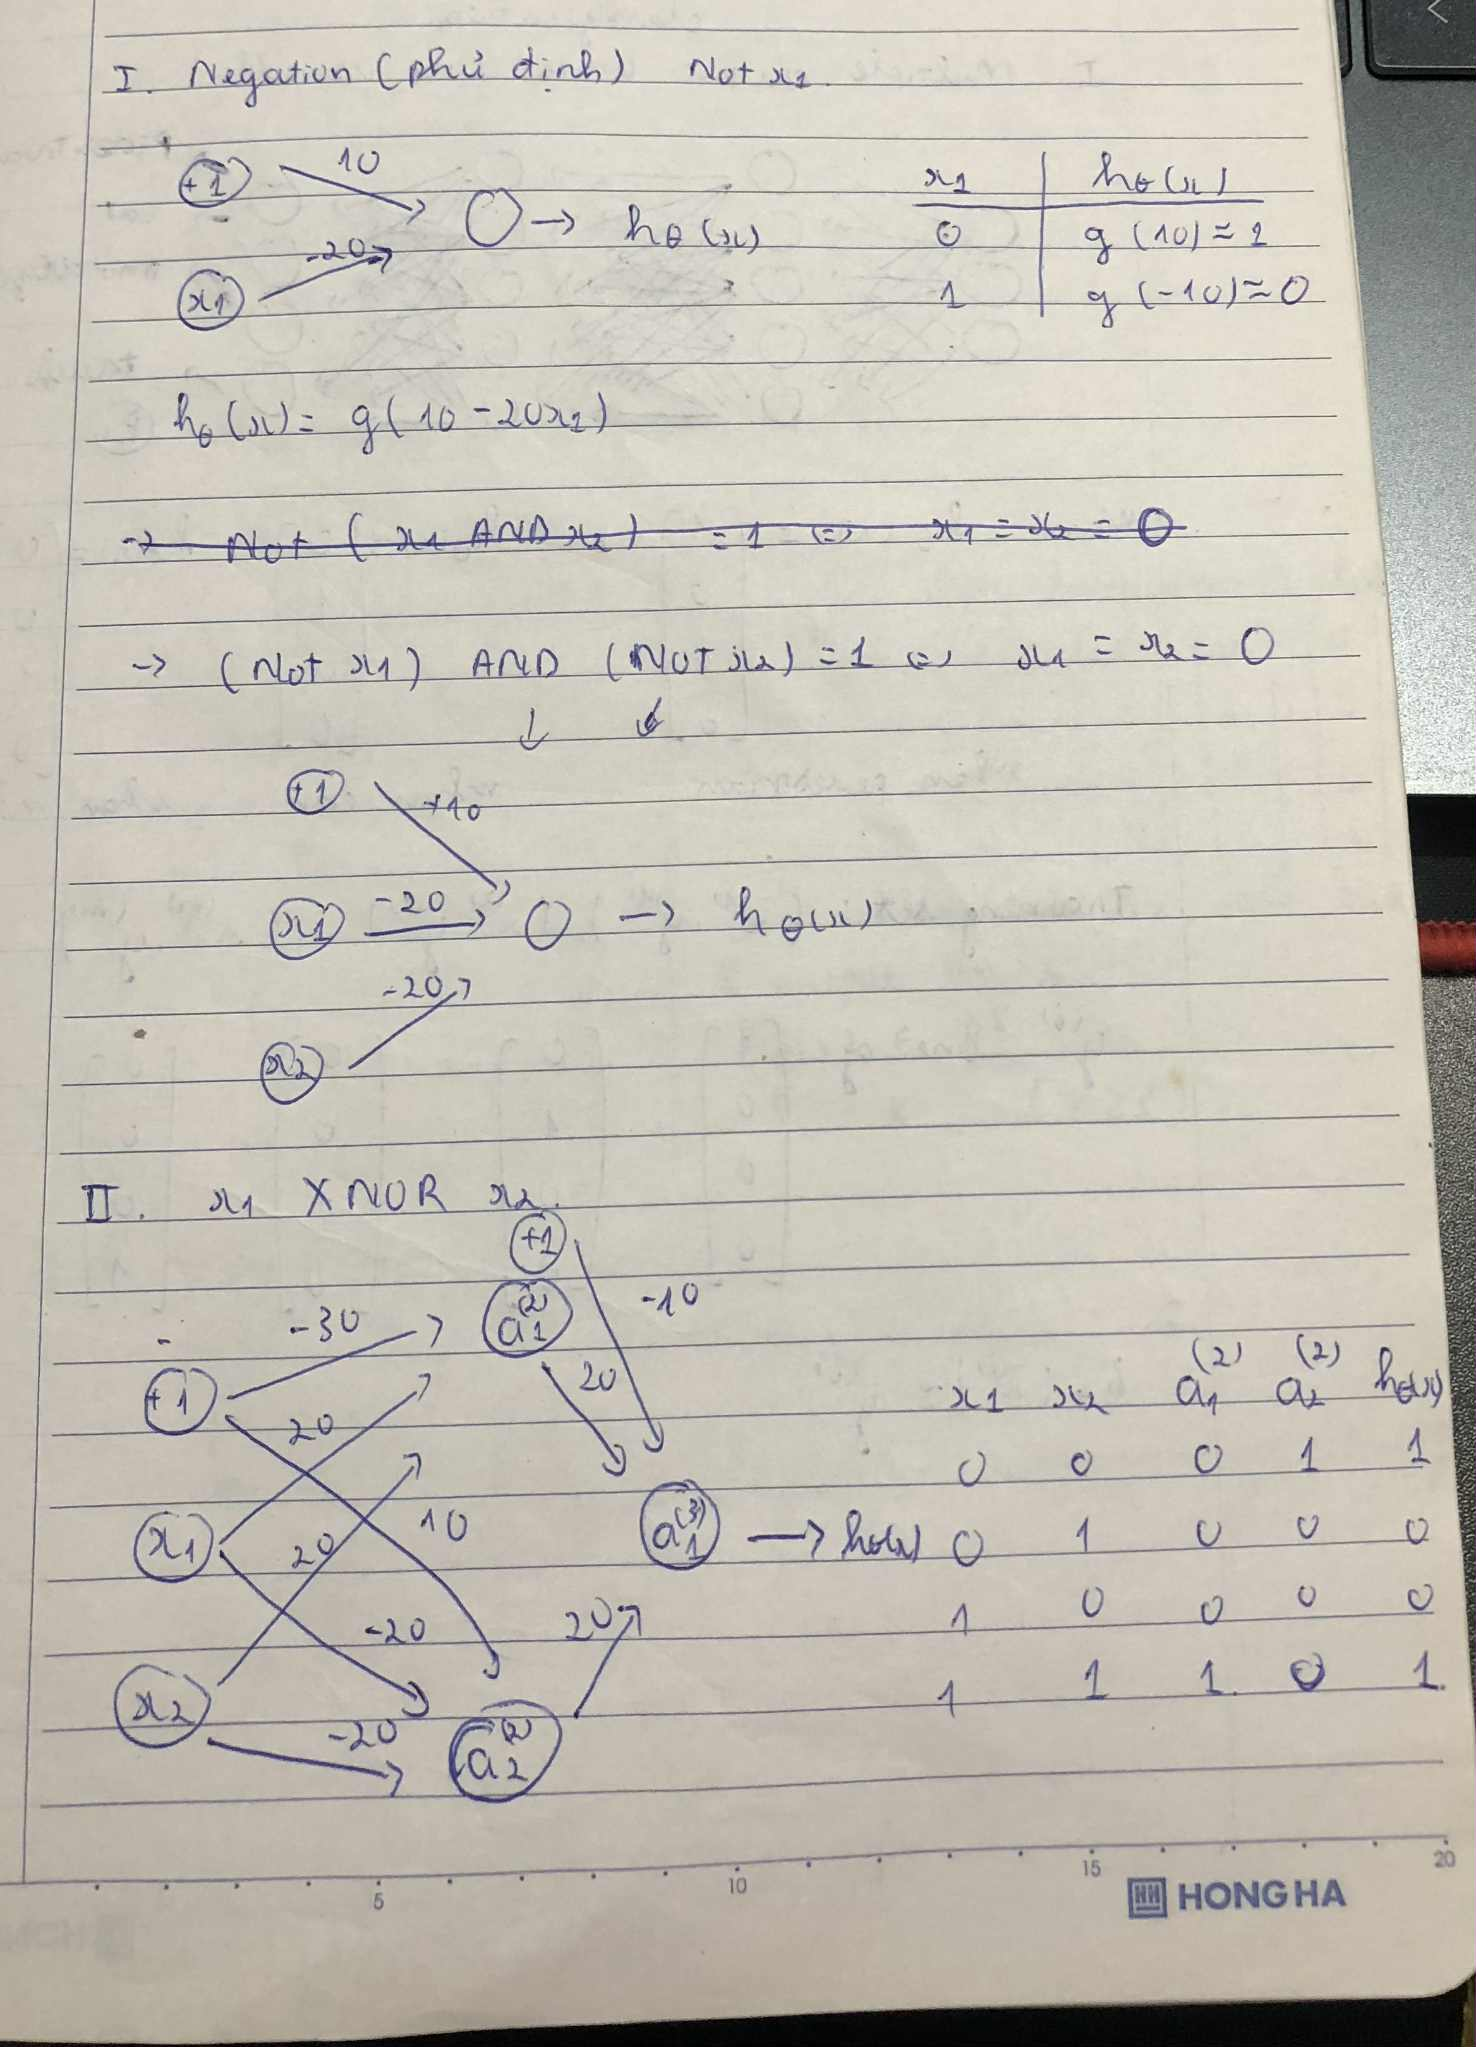 I. Negation (phủ định) Not x1.
+1 10
x1 -20 → hθ(x)
x1 | hθ(x)
0 | g(10) ≈ 1
1 | g(-10) ≈ 0
hθ(x) = g(10 - 20x1)
→ Not (x1 AND x2) = 1 ⇔ x1 = x2 = 0
→ (Not x1) AND (NOT x2) = 1 ⇔ x1 = x2 = 0
↓ ↓
+1 +10
x1 -20 → hθ(x)
x2 -20
II. x1 XNOR x2.
+1 -10
-30 a1(2) 20
+1 20 10
x1 20 -20 a1(3) → hθ(x)
x2 -20 a2(2) 20
x1 x2 a1(2) a2(2) hθ(x)
0 0 0 1 1
0 1 0 0 0
1 0 0 0 0
1 1 1 0 1
5 10 15 20
HH HONG HA